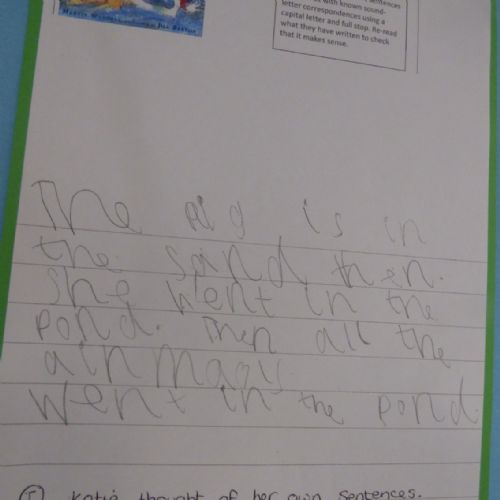 Martin Waddell Jill Barton
sentences
with known sound-
letter correspondences using a
capital letter and full stop. Re-read
what they have written to check
that it makes sense.
The pig is in
the sand then.
She went in the
pond. Then all the
ainmagls
went in the pond.
Katie thought of her own sentences.